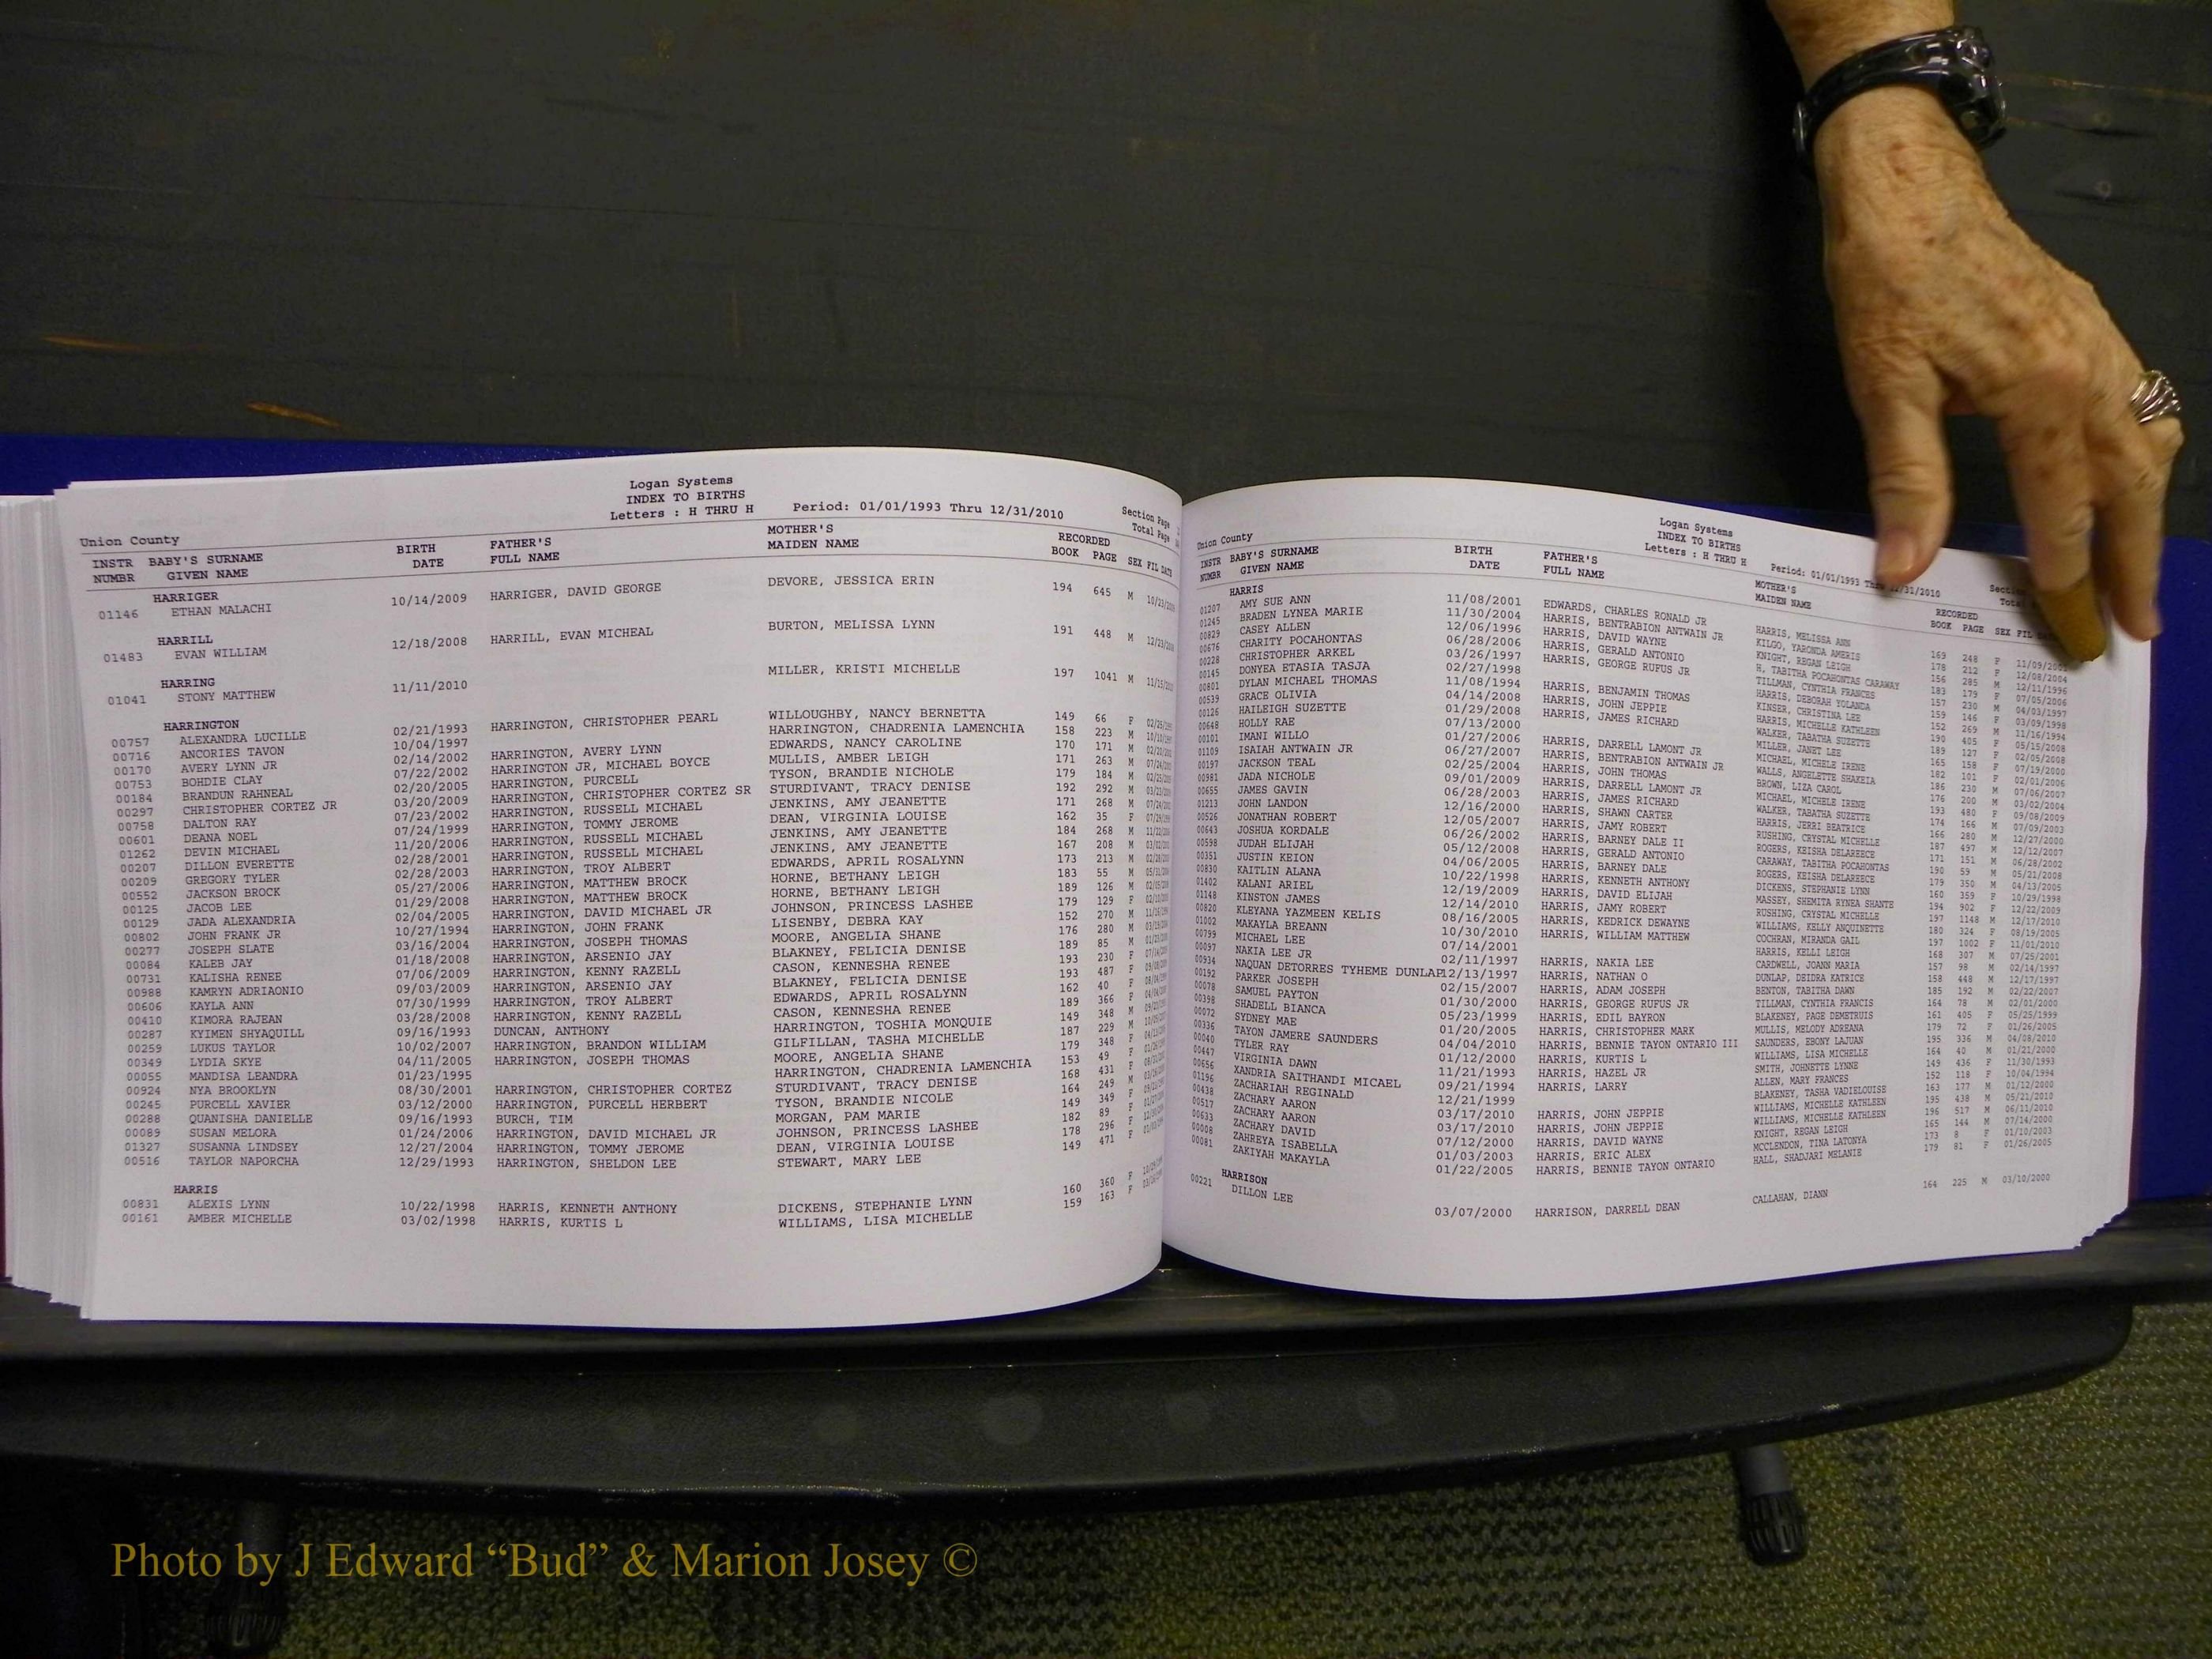 Logan Systems
INDEX TO BIRTHS
Letters : H THRU H Period: 01/01/1993 Thru 12/31/2010 Section Page
Total Page
Union County
INSTR BABY'S SURNAME BIRTH FATHER'S MOTHER'S RECORDED
NUMBR GIVEN NAME DATE FULL NAME MAIDEN NAME BOOK PAGE SEX FIL DATE
HARRIGER
01146 ETHAN MALACHI 10/14/2009 HARRIGER, DAVID GEORGE DEVORE, JESSICA ERIN 194 645 M
HARRILL
01483 EVAN WILLIAM 12/18/2008 HARRILL, EVAN MICHEAL BURTON, MELISSA LYNN 191 448 M
HARRING
01041 STONY MATTHEW 11/11/2010 MILLER, KRISTI MICHELLE 197 1041 M
HARRINGTON
00757 ALEXANDRA LUCILLE 02/21/1993 HARRINGTON, CHRISTOPHER PEARL WILLOUGHBY, NANCY BERNETTA 149 66
00716 ANCORIES TAVON 10/04/1997 HARRINGTON, CHADRENIA LAMENCHIA 158 223
00170 AVERY LYNN JR 02/14/2002 HARRINGTON, AVERY LYNN EDWARDS, NANCY CAROLINE 170 171
00753 BOHDIE CLAY 07/22/2002 HARRINGTON JR, MICHAEL BOYCE MULLIS, AMBER LEIGH 171 263
00184 BRANDUN RAHNEAL 02/20/2005 HARRINGTON, PURCELL TYSON, BRANDIE NICHOLE 179 184
00297 CHRISTOPHER CORTEZ JR 03/20/2009 HARRINGTON, CHRISTOPHER CORTEZ SR STURDIVANT, TRACY DENISE 192 292
00758 DALTON RAY 07/23/2002 HARRINGTON, RUSSELL MICHAEL JENKINS, AMY JEANETTE 171 268
00601 DEANA NOEL 07/24/1999 HARRINGTON, TOMMY JEROME DEAN, VIRGINIA LOUISE 162 35
01262 DEVIN MICHAEL 11/20/2006 HARRINGTON, RUSSELL MICHAEL JENKINS, AMY JEANETTE 184 268
00207 DILLON EVERETTE 02/28/2001 HARRINGTON, RUSSELL MICHAEL JENKINS, AMY JEANETTE 167 208
00209 GREGORY TYLER 02/28/2003 HARRINGTON, TROY ALBERT EDWARDS, APRIL ROSALYNN 173 213
00552 JACKSON BROCK 05/27/2006 HARRINGTON, MATTHEW BROCK HORNE, BETHANY LEIGH 183 55
00125 JACOB LEE 01/29/2008 HARRINGTON, MATTHEW BROCK HORNE, BETHANY LEIGH 189 126
00129 JADA ALEXANDRIA 02/04/2005 HARRINGTON, DAVID MICHAEL JR JOHNSON, PRINCESS LASHEE 179 129
00802 JOHN FRANK JR 10/27/1994 HARRINGTON, JOHN FRANK LISENBY, DEBRA KAY 152 270
00277 JOSEPH SLATE 03/16/2004 HARRINGTON, JOSEPH THOMAS MOORE, ANGELIA SHANE 176 280
00084 KALEB JAY 01/18/2008 HARRINGTON, ARSENIO JAY BLAKNEY, FELICIA DENISE 189 85
00731 KALISHA RENEE 07/06/2009 HARRINGTON, KENNY RAZELL CASON, KENNESHA RENEE 193 230
00988 KAMRYN ADRIAONIO 09/03/2009 HARRINGTON, ARSENIO JAY BLAKNEY, FELICIA DENISE 193 487
00606 KAYLA ANN 07/30/1999 HARRINGTON, TROY ALBERT EDWARDS, APRIL ROSALYNN 162 40
00410 KIMORA RAJEAN 03/28/2008 HARRINGTON, KENNY RAZELL CASON, KENNESHA RENEE 189 366
00287 KYIMEN SHYAQUILL 09/16/1993 DUNCAN, ANTHONY HARRINGTON, TOSHIA MONQUIE 149 348
00259 LUKUS TAYLOR 10/02/2007 HARRINGTON, BRANDON WILLIAM GILFILLAN, TASHA MICHELLE 187 229
00349 LYDIA SKYE 04/11/2005 HARRINGTON, JOSEPH THOMAS MOORE, ANGELIA SHANE 179 348
00055 MANDISA LEANDRA 01/23/1995 HARRINGTON, CHADRENIA LAMENCHIA 153 49
00924 NYA BROOKLYN 08/30/2001 HARRINGTON, CHRISTOPHER CORTEZ STURDIVANT, TRACY DENISE 168 431
00245 PURCELL XAVIER 03/12/2000 HARRINGTON, PURCELL HERBERT TYSON, BRANDIE NICOLE 164 249
00288 QUANISHA DANIELLE 09/16/1993 BURCH, TIM MORGAN, PAM MARIE 149 349
00089 SUSAN MELORA 01/24/2006 HARRINGTON, DAVID MICHAEL JR JOHNSON, PRINCESS LASHEE 182 89
01327 SUSANNA LINDSEY 12/27/2004 HARRINGTON, TOMMY JEROME DEAN, VIRGINIA LOUISE 178 296
00516 TAYLOR NAPORCHA 12/29/1993 HARRINGTON, SHELDON LEE STEWART, MARY LEE 149 471
HARRIS
00831 ALEXIS LYNN 10/22/1998 HARRIS, KENNETH ANTHONY DICKENS, STEPHANIE LYNN 160 360 F
00161 AMBER MICHELLE 03/02/1998 HARRIS, KURTIS L WILLIAMS, LISA MICHELLE 159 163 F
Logan Systems
INDEX TO BIRTHS
Letters : H THRU H Period: 01/01/1993 Thru 12/31/2010
Union County
INSTR BABY'S SURNAME BIRTH FATHER'S MOTHER'S RECORDED
NUMBR GIVEN NAME DATE FULL NAME MAIDEN NAME BOOK PAGE SEX FIL
HARRIS
01207 AMY SUE ANN 11/08/2001 EDWARDS, CHARLES RONALD JR HARRIS, MELISSA ANN 169 248 F 11/09/2001
01245 BRADEN LYNEA MARIE 11/30/2004 HARRIS, BENTRABION ANTWAIN JR KILGO, YARONDA AMERIS 178 212 F 12/08/2004
00829 CASEY ALLEN 12/06/1996 HARRIS, DAVID WAYNE KNIGHT, REGAN LEIGH 156 285 M 12/11/1996
00676 CHARITY POCAHONTAS 06/28/2006 HARRIS, GERALD ANTONIO H. TABITHA POCAHONTAS CARAWAY 183 179 F 07/05/2006
00228 CHRISTOPHER ARKEL 03/26/1997 HARRIS, GEORGE RUFUS JR TILLMAN, CYNTHIA FRANCES 157 230 M 04/03/1997
00145 DONYEA ETASIA TASJA 02/27/1998 HARRIS, DEBORAH YOLANDA 159 146 F 03/09/1998
00801 DYLAN MICHAEL THOMAS 11/08/1994 HARRIS, BENJAMIN THOMAS KINSER, CHRISTINA LEE 152 269 M 11/16/1994
00539 GRACE OLIVIA 04/14/2008 HARRIS, JOHN JEPPIE HARRIS, MICHELLE KATHLEEN 190 405 F 05/15/2008
00126 HAILEIGH SUZETTE 01/29/2008 HARRIS, JAMES RICHARD WALKER, TABATHA SUZETTE 189 127 F 02/05/2008
00648 HOLLY RAE 07/13/2000 MILLER, JANET LEE 165 158 F 07/19/2000
00101 IMANI WILLO 01/27/2006 HARRIS, DARRELL LAMONT JR MICHAEL, MICHELE IRENE 182 101 F 02/01/2006
01109 ISAIAH ANTWAIN JR 06/27/2007 HARRIS, BENTRABION ANTWAIN JR WALLS, ANGELETTE SHAKEIA 186 230 M 07/06/2007
00197 JACKSON TEAL 02/25/2004 HARRIS, JOHN THOMAS BROWN, LIZA CAROL 176 200 M 03/02/2004
00981 JADA NICHOLE 09/01/2009 HARRIS, DARRELL LAMONT JR MICHAEL, MICHELE IRENE 193 480 F 09/08/2009
00655 JAMES GAVIN 06/28/2003 HARRIS, JAMES RICHARD WALKER, TABATHA SUZETTE 174 166 M 07/09/2003
01213 JOHN LANDON 12/16/2000 HARRIS, SHAWN CARTER HARRIS, JERRI BEATRICE 166 280 M 12/27/2000
00526 JONATHAN ROBERT 12/05/2007 HARRIS, JAMY ROBERT RUSHING, CRYSTAL MICHELLE 187 497 M 12/12/2007
00643 JOSHUA KORDALE 06/26/2002 HARRIS, BARNEY DALE II ROGERS, KEISHA DELAREECE 171 151 M 06/28/2002
00598 JUDAH ELIJAH 05/12/2008 HARRIS, GERALD ANTONIO CARAWAY, TABITHA POCAHONTAS 190 59 M 05/21/2008
00351 JUSTIN KEION 04/06/2005 HARRIS, BARNEY DALE ROGERS, KEISHA DELAREECE 179 350 M 04/13/2005
00830 KAITLIN ALANA 10/22/1998 HARRIS, KENNETH ANTHONY DICKENS, STEPHANIE LYNN 160 359 F 10/29/1998
01402 KALANI ARIEL 12/19/2009 HARRIS, DAVID ELIJAH MASSEY, SHEMITA RYNEA SHANTE 194 902 F 12/22/2009
01148 KINSTON JAMES 12/14/2010 HARRIS, JAMY ROBERT RUSHING, CRYSTAL MICHELLE 197 1148 M 12/17/2010
00820 KLEYANA YAZMEEN KELIS 08/16/2005 HARRIS, KEDRICK DEWAYNE WILLIAMS, KELLY ANQUINETTE 180 324 F 08/19/2005
01002 MAKAYLA BREANN 10/30/2010 HARRIS, WILLIAM MATTHEW COCHRAN, MIRANDA GAIL 197 1002 F 11/01/2010
00799 MICHAEL LEE 07/14/2001 HARRIS, KELLI LEIGH 168 307 M 07/25/2001
00097 NAKIA LEE JR 02/11/1997 HARRIS, NAKIA LEE CARDWELL, JOANN MARIA 157 98 M 02/14/1997
00934 NAQUAN DETORRES TYHEME DUNLAP 12/13/1997 HARRIS, NATHAN O DUNLAP, DEIDRA KATRICE 158 448 M 12/17/1997
00192 PARKER JOSEPH 02/15/2007 HARRIS, ADAM JOSEPH BENTON, TABITHA DAWN 185 192 M 02/22/2007
00078 SAMUEL PAYTON 01/30/2000 HARRIS, GEORGE RUFUS JR TILLMAN, CYNTHIA FRANCIS 164 78 M 02/01/2000
00398 SHADELL BIANCA 05/23/1999 HARRIS, EDIL BAYRON BLAKENEY, PAGE DEMETRUIS 161 405 F 05/25/1999
00072 SYDNEY MAE 01/20/2005 HARRIS, CHRISTOPHER MARK MULLIS, MELODY ADREANA 179 72 F 01/26/2005
00336 TAYON JAMERE SAUNDERS 04/04/2010 HARRIS, BENNIE TAYON ONTARIO III SAUNDERS, EBONY LAJUAN 195 336 M 04/08/2010
00040 TYLER RAY 01/12/2000 HARRIS, KURTIS L WILLIAMS, LISA MICHELLE 164 40 M 01/21/2000
00447 VIRGINIA DAWN 11/21/1993 HARRIS, HAZEL JR SMITH, JOHNETTE LYNNE 149 436 F 11/30/1993
00656 XANDRIA SAITHANDI MICAEL 09/21/1994 HARRIS, LARRY ALLEN, MARY FRANCES 152 118 F 10/04/1994
01196 ZACHARIAH REGINALD 12/21/1999 BLAKENEY, TASHA VADIELOUISE 163 177 M 01/12/2000
00438 ZACHARY AARON 03/17/2010 HARRIS, JOHN JEPPIE WILLIAMS, MICHELLE KATHLEEN 195 438 M 05/21/2010
00517 ZACHARY AARON 03/17/2010 HARRIS, JOHN JEPPIE WILLIAMS, MICHELLE KATHLEEN 196 517 M 06/11/2010
00633 ZACHARY DAVID 07/12/2000 HARRIS, DAVID WAYNE KNIGHT, REGAN LEIGH 165 144 M 07/14/2000
00008 ZAHREYA ISABELLA 01/03/2003 HARRIS, ERIC ALEX MCCLENDON, TINA LATONYA 173 8 F 01/10/2003
00081 ZAKIYAH MAKAYLA 01/22/2005 HARRIS, BENNIE TAYON ONTARIO HALL, SHADJARI MELANIE 179 81 F 01/26/2005
HARRISON
00221 DILLON LEE 03/07/2000 HARRISON, DARRELL DEAN CALLAHAN, DIANN 164 225 M 03/10/2000
Photo by J Edward “Bud” & Marion Josey ©